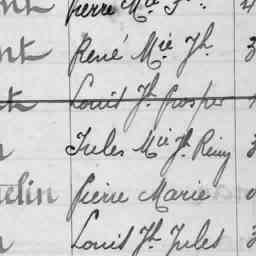 nt Pierre Mie
nt René Mie Jh 3
Louis Jh Prosper
Jules Mie Jh Rémy 3
elin Pierre Marie
Louis Jh Jules 3